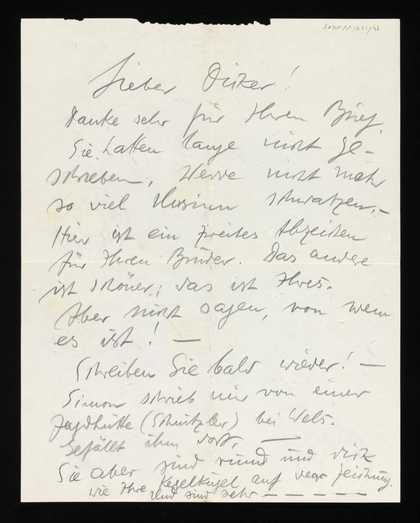 Lieber Disker!
Danke sehr für Ihren Brief.
Sie hatten lange nicht ge-
schrieben. Werde nicht mehr
so viel Unsinn schwatzen. –
Hier ist ein zweites Abzeichen
für Ihren Bruder. Das andere
ist schöner; das ist Ihres.
Aber nicht sagen, von wem
es ist! –
Schreiben Sie bald wieder! –
Simon schrieb mir von einer
Jagdhütte (Schnitzler) bei Wels.
Gefällt ihm dort. –
Sie aber sind rund und dick
wie Ihre Kegelkugel auf der Zeichnung.
und sind sehr – – – – –